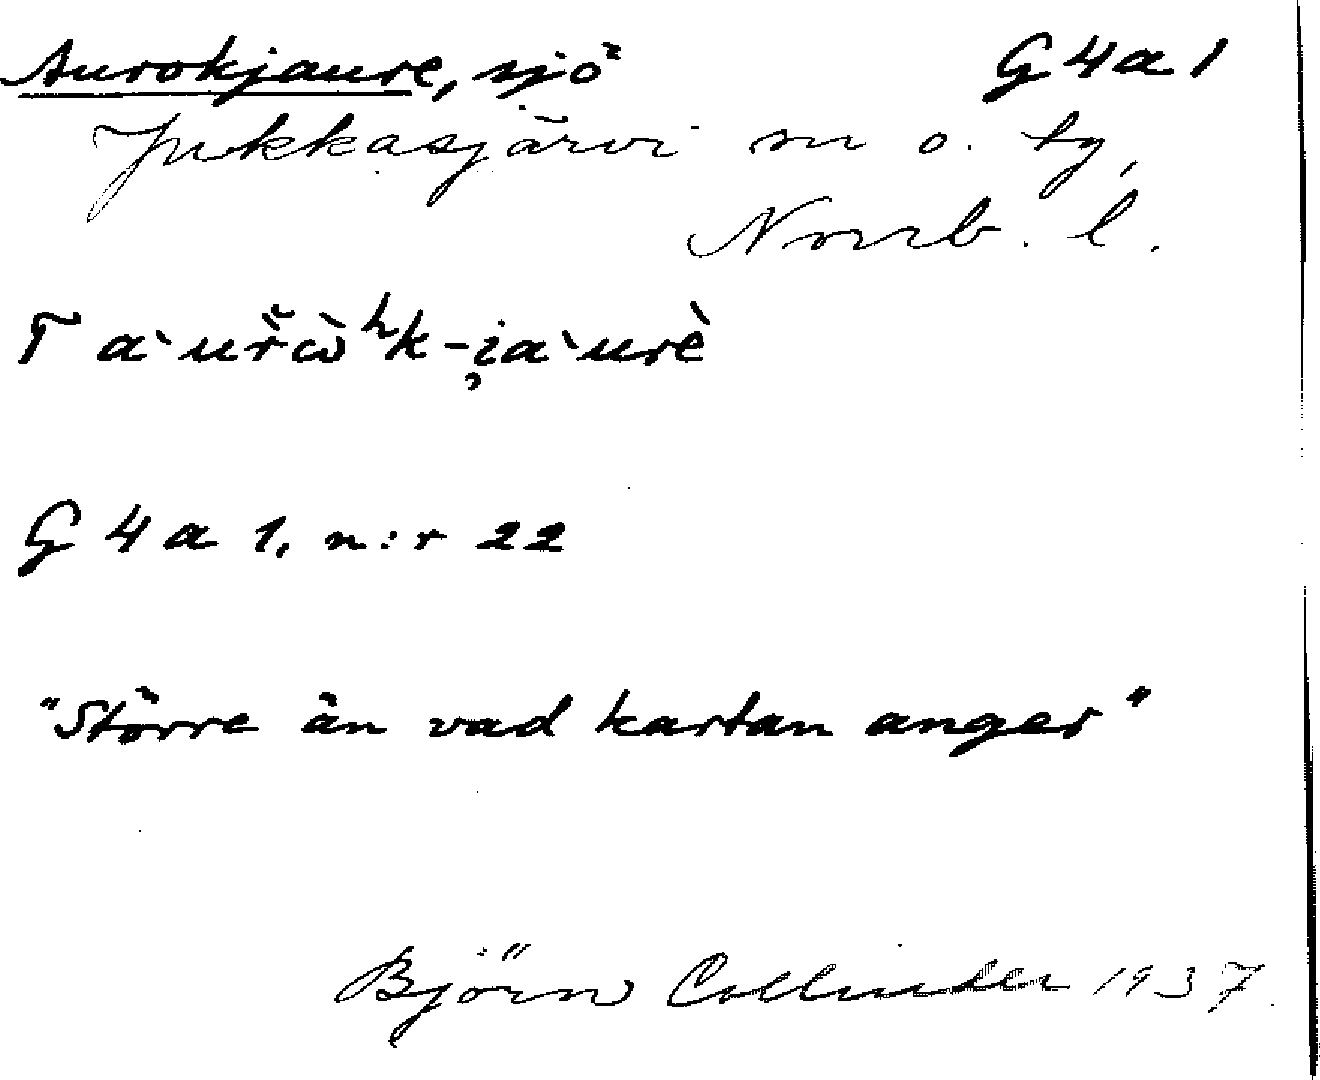 Aurokjaure, sjö G 4a 1
Jukkasjärvi sn o. tg,
Norrb. l.
T a`uřὼʰk-i̯a`urè
G 4 a 1, n:r 22
"Större än vad kartan anger"
Björn Collinder 1937.